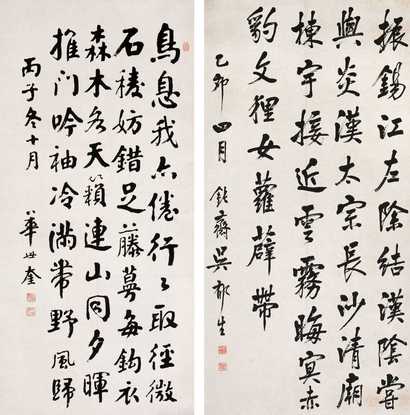 振錫江左除結漢陰嘗
與炎漢太宗長沙清廟
棟宇接近雲霧晦冥赤
豹文狸女蘿薜帶
乙卯四月 鈍齋吳郁生
鳥息我亦倦行〻取徑微
石稜妨錯足藤蔓每鈎衣
森木各天籟連山同夕暉
推门吟袖冷満帶野風歸
丙子冬十月
華世奎